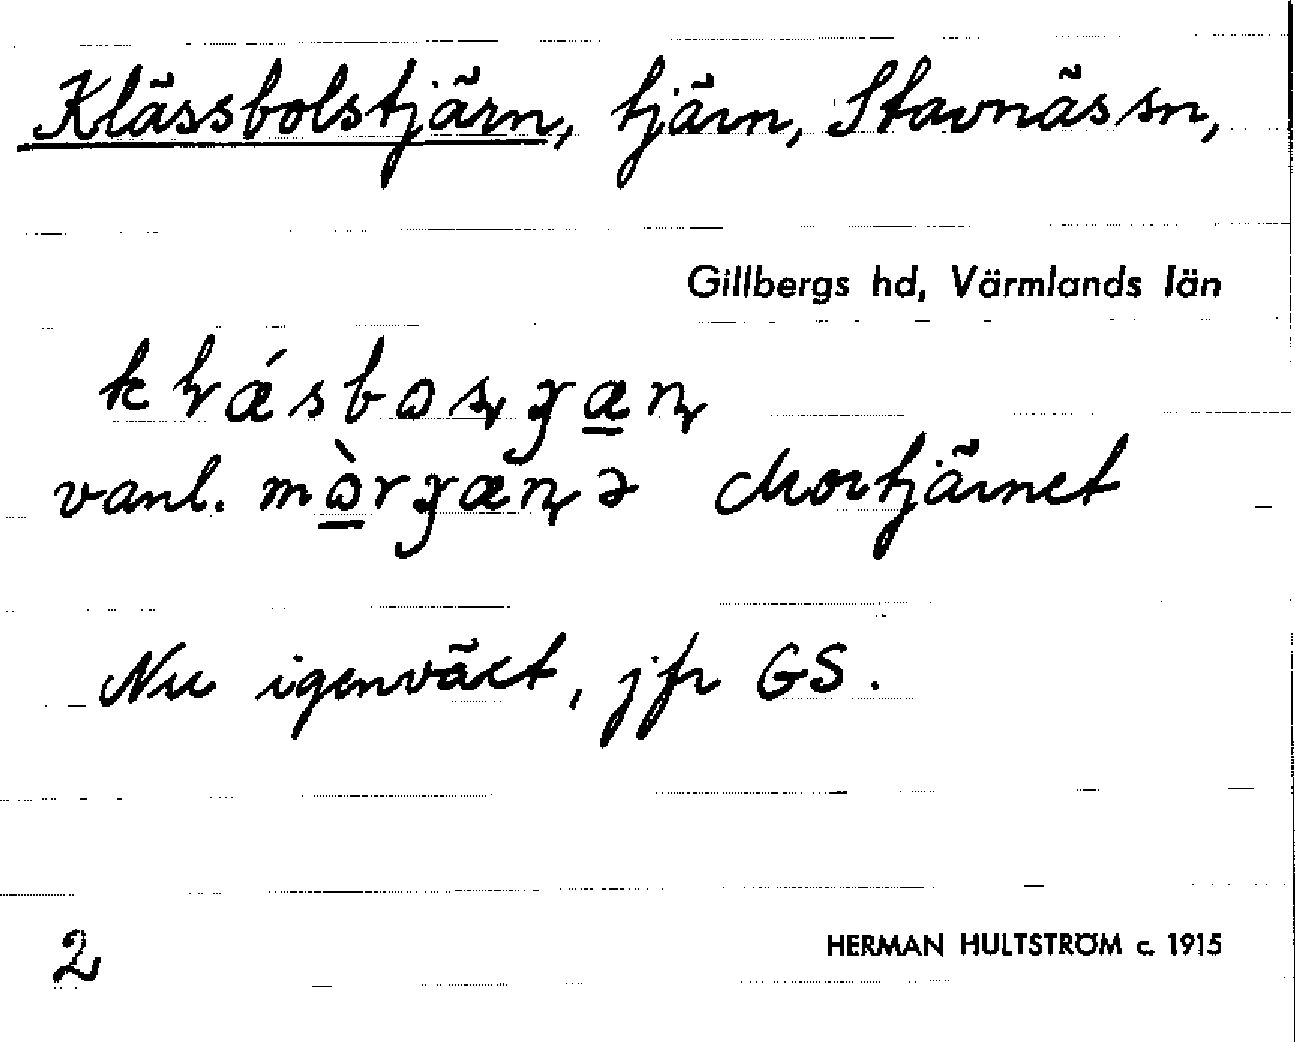 Klässbolstjärn, tjärn, Stavnäs sn,
Gillbergs hd, Värmlands län
vanl. Mortjärnet
Nu igenväxt, jfr GS.
2 HERMAN HULTSTRÖM c. 1915